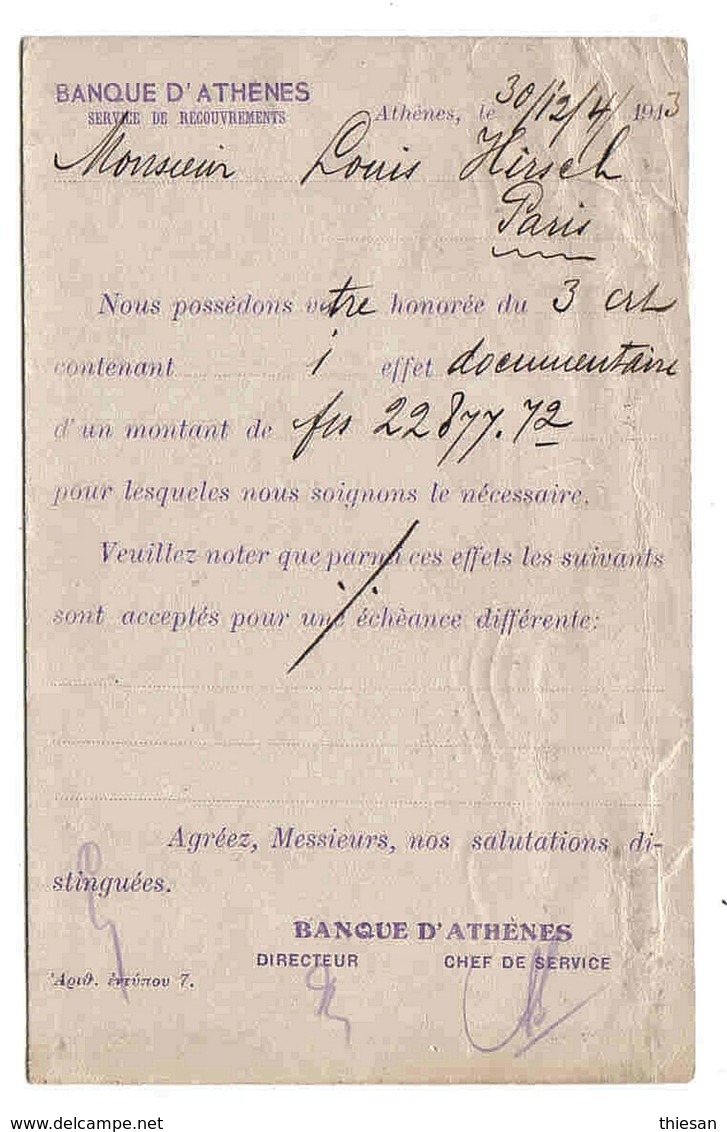 BANQUE D'ATHENES
SERVICE DE RECOUVREMENTS
Athènes, le 30/12/4/ 1913
Monsieur Louis Hirsch
Paris
Nous possédons votre honorée du 3 crt
contenant 1 effet documentaire
d'un montant de frs 22877.72
pour lesqueles nous soignons le nécessaire.
Veuillez noter que parmi ces effets les suivants
sont acceptés pour une échèance différente:
Agréez, Messieurs, nos salutations di-
stinguées.
BANQUE D'ATHÈNES
DIRECTEUR CHEF DE SERVICE
Ἀριθ. ἐντύπου 7.
delcampe.net
thiesan